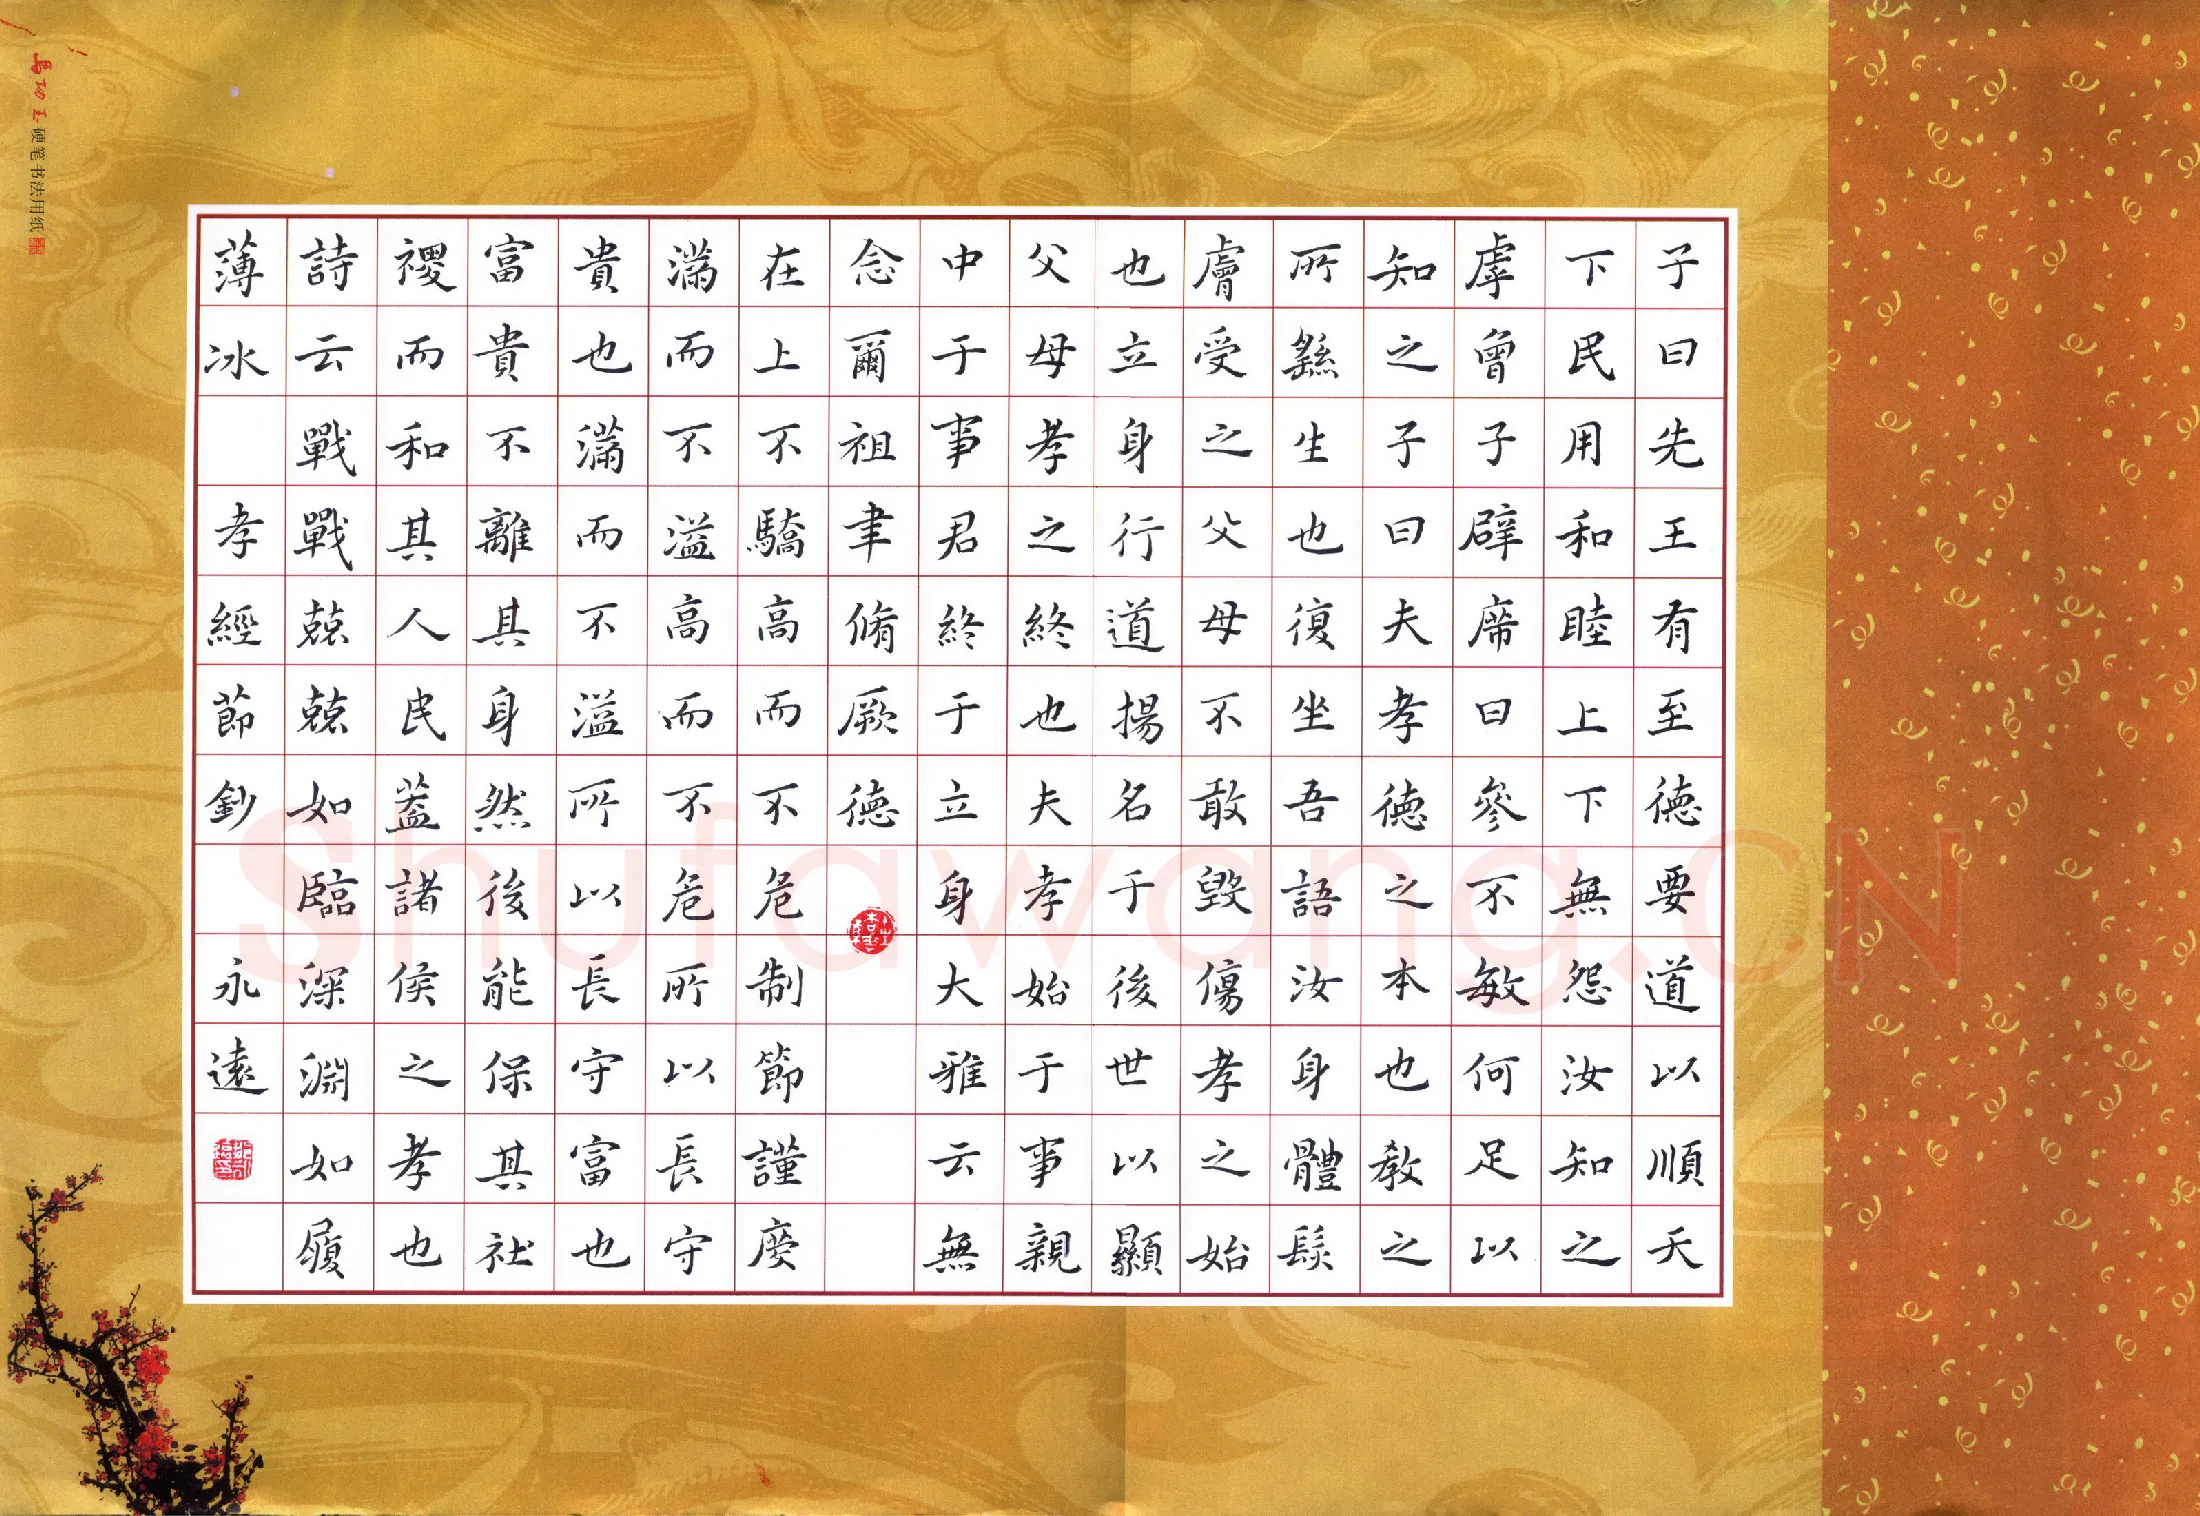 子曰先王有至德要道以順天
下民用和睦上下無怨汝知之
虖曾子辟席曰參不敏何足以
知之子曰夫孝德之本也教之
所繇生也復坐吾語汝身體髮
膚受之父母不敢毀傷孝之始
也立身行道揚名于後世以顯
父母孝之終也夫孝始于事親
中于事君終于立身大雅云無
念爾祖聿脩厥德
在上不驕高而不危制節謹度
滿而不溢高而不危所以長守
貴也滿而不溢所以長守富也
富貴不離其身然後能保其社
稷而和其人民蓋諸侯之孝也
詩云戰戰兢兢如臨深淵如履
薄冰 孝經節鈔 永遠
硬笔书法用纸
Shufawang.CN